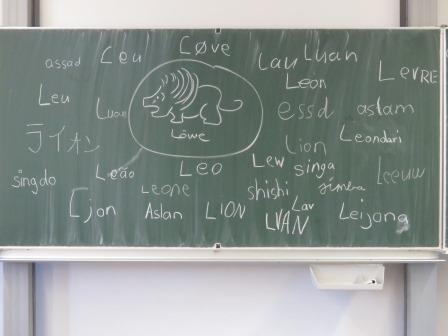 assad Leu Cøve Lau Luan
Leon LevRE
Leu Luan essd astam
Löwe
ライオン Lion Leondari
singdo Leão Leo Lew singa Leeuw
Leone shishi simba
Ljon Aslan LION Lav
LVAN Leijona